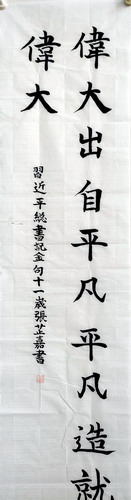 偉大出自平凡平凡造就
偉大
習近平總書記金句十一歲張芷嘉書